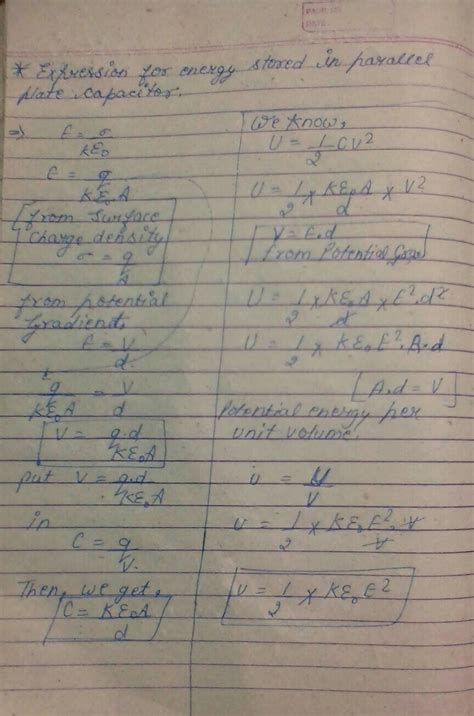 PAGE NO.
DATE
* Expression for energy stored in parallel
plate capacitor.
⇒ E = σ/Kε₀
E = q/Kε₀A
[from surface
charge density
σ = q/A]
from potential
Gradient,
E = V/d.
q/Kε₀A = V/d
V = q.d/Kε₀A
put V = q.d/Kε₀A
in
C = q/V.
Then, we get,
C = Kε₀A/d
We know,
U = 1/2 CV²
U = 1/2 × Kε₀A/d × V²
[V = E.d
from Potential
U = 1/2 × Kε₀A/d × E².d²
U = 1/2 × Kε₀E².A.d
[A.d = V]
Potential energy per
unit volume.
u = U/V
U = 1/2 × Kε₀E².V/V
U = 1/2 × Kε₀E²